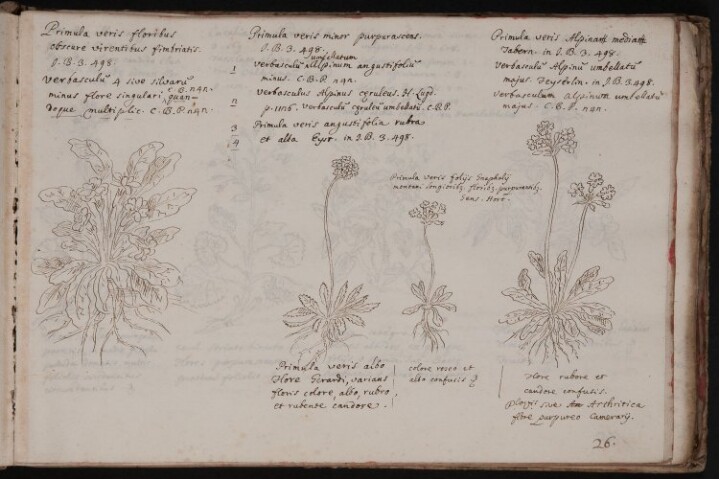 Primula veris floribus
obscure virentibus fimbriatis.
J.B. 3. 498
verbasculū 4 sive silvarū
minus flore singulari C.B. n4n.
deque multiplic. C.B.P. n4n.
Primula veris minor purpurascens.
J.B. 3. 498.
umbellatum
1 verbasculū Allpinum angustifoliū
minus. C.B.P. n4n.
verbasculus Alpinus cyruleus. H. Lugd.
2 p. 1116. verbasculū cyruleū umbellatū. C.B.P.
3 Primula veris angustifolia rubra
4 et alba Eyst. in J.B. 3. 498.
Primula veris Alpinarū mediarū
Tabern. in J.B. 3. 498.
verbasculū Alpinū umbellatū
majus. in J.B. 3. 498.
verbasculum alpinum umbellatū
majus. C.B.P. n4n.
Primula veris folijs Gnaphalij
montani longioribꝫ floribꝫ purpureis
Primula veris albo
flore Gerardi, varians
floris colore, albo, rubro,
et rubente candore.
colore roseo et
albo confusis
flore rubore et
candore confusis.
sive Arthritica
flore purpureo Camerarij.
26.